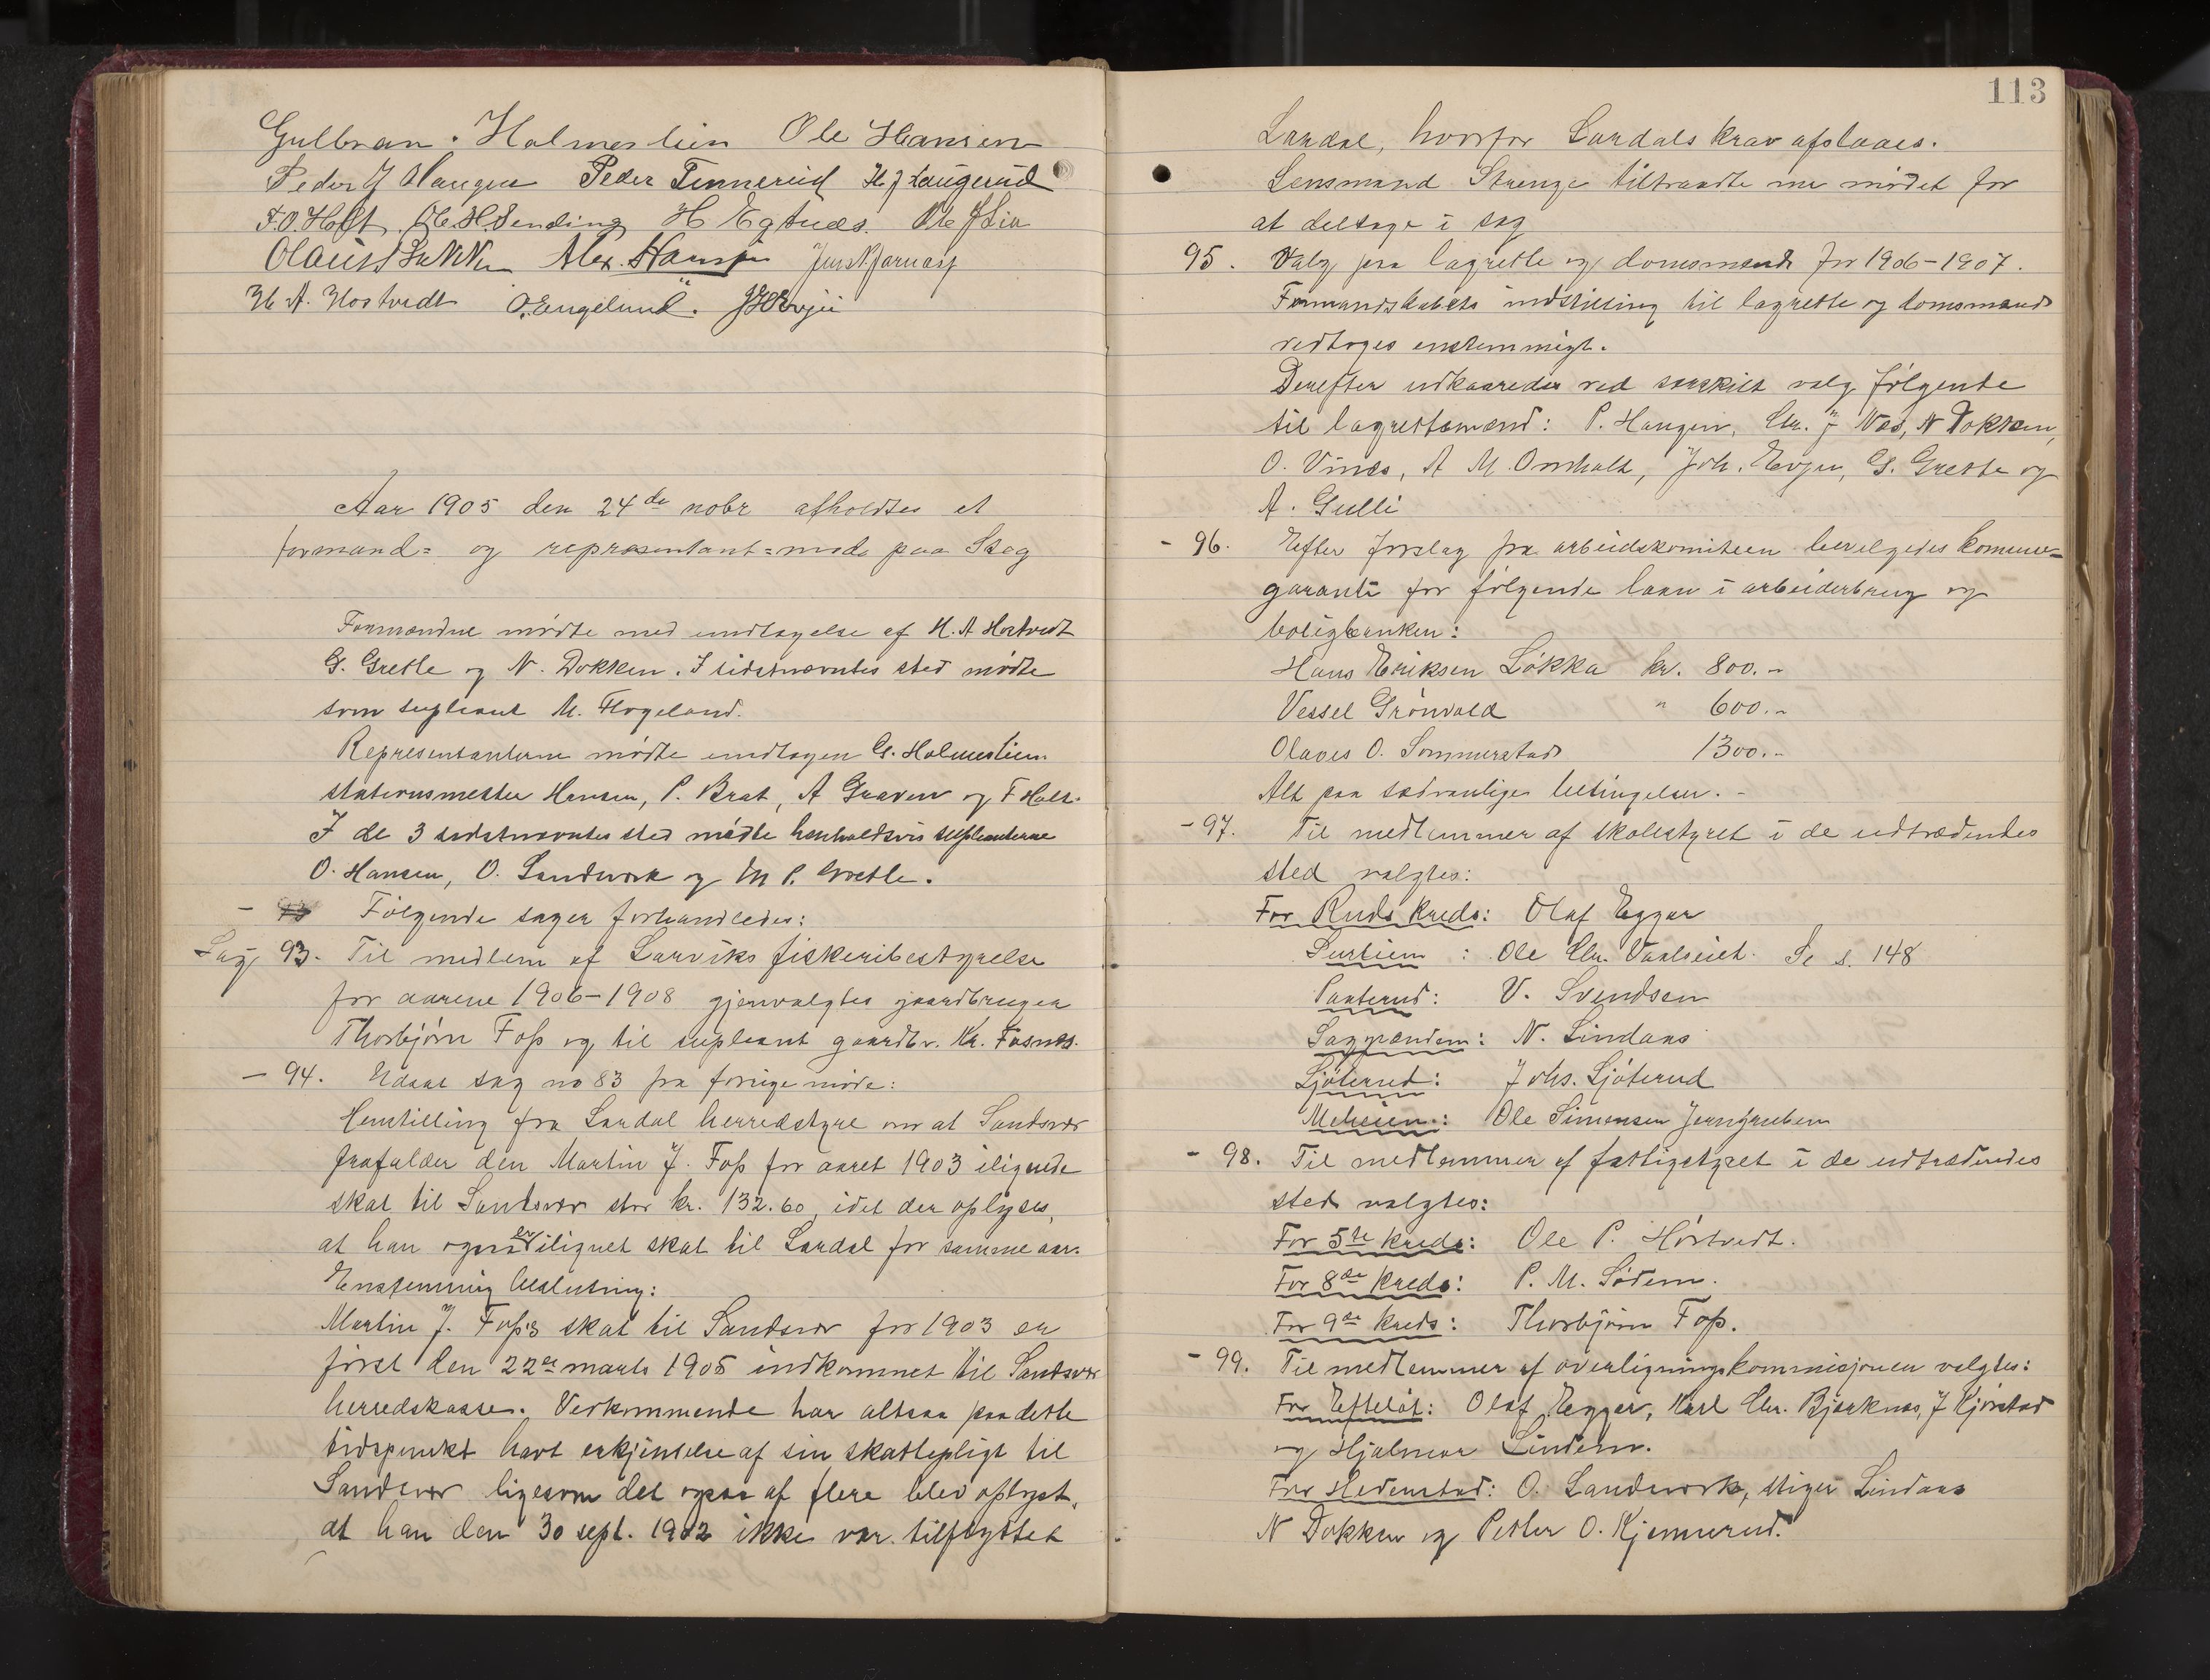 Gulbran Holmestien Ole Hansen
Peder J Haugen Peder Tennerud H J Laugerud
F.O. Holt. Ole H Sending H Egtnæs. Ole J Lia
Alex. Hansen
H. A. Hortvedt O. Engelund. J H Evju
Aar 1905 den 24de nobr afholdtes et
formand= og representant=møde paa Skog
Formændne mødte med undtagelse af H. A Hortvedt
G. Gretle og N. Dokken. I sidstnævntes sted mødte
som supleant M. Fløgeland.
Representanterne mødte undtagen G. Holmestien
P. Brat, A Graven og F Holt.
I de 3 sidstnævntes sted mødte henholdsvis supleanterne
O. Hansen, O. Landverk og M P. Gretle.
Følgende sager forhandledes:
Sag 93. Til medlem af Larviks fiskeribestyrelse
for aarene 1906–1908 gjenvalgtes gaardbruger
Thorbjørn Foss og til supleant gaardbr. Kr. Fosnæs.
— 94. Udsat sag no 83 fra forrige møde:
Henstilling fra Lardal herredstyre om at Sandsvær
frafalder den Martin J. Foss for aaret 1903 ilignede
skat til Sandsvær stor kr. 132.60, idet der oplyses,
at han ogsaa er ilignet skat til Lardal for samme aar.
Enstemmig beslutning:
Martin J. Foss's skat til Sandsvær for 1903 er
først den 22de marts 1905 indkommet til Sandsvær
herredskasse. Vedkommende har altsaa paa dette
tidspunkt havt erkjendelse af sin skattepligt til
Sandsvær ligesom det ogsaa af flere blev oplyst,
at han den 30 sept. 1902 ikke var tilflyttet
113
Lardal, hvorfor Lardals krav afslaaes.
Lensmand Stenge tiltraadte nu mødet for
at deltage i sag
95. Valg paa lagrette og domsmænd for 1906–1907.
Formandskabets indstilling til lagrette og domsmænd
vedtoges enstemmigt.
Derefter udkaaredes ved særskilt valg følgende
til lagrettemænd: P. Haugen, Chr. J Næs, N Dokken,
O. Vinæs, A M. Omholt, Joh. Evju, G. Gretle og
A. Gulli
- 96. Efter forslag fra arbeidskomiteen bevilgedes kommune=
garanti for følgende laan i arbeiderbrug og
boligbanken:
Hans Eriksen Løkka kr. 800.-
Vessel Grønvold " 600.-
Olaves O. Sommerstad 1300.-
Alt paa sædvanlige betingelser. -
- 97. Til medlemmer af skolestyret i de udtrædendes
sted valgtes:
For Ruds kreds: Olaf Eggar
Surtiem : Ole Chr. Vaalseiet. Se s. 148
Paaterud: V. Svendsen
Saggrænden: N. Lindaas
Ljøterud: Johs. Ljøterud
Meheien: Ole Simensen Jerngruben
- 98. Til medlemmer af fattigstyret i de udtrædendes
sted valgtes:
For 5te kreds: Ole P. Hørtvedt.
For 8de kreds: P. M. Lødem.
For 9de kreds: Thorbjørn Foss.
- 99. Til medlemmer af overligningskommisjonen valgtes:
For Efteløt: Olaf Eggar, Karl Chr. Bjerknæs, J Kjørstad
og Hjalmar Lindem.
For Hedenstad: O. Landverk, stiger Lindaas
N Dokken og Petter O. Kjennerud.